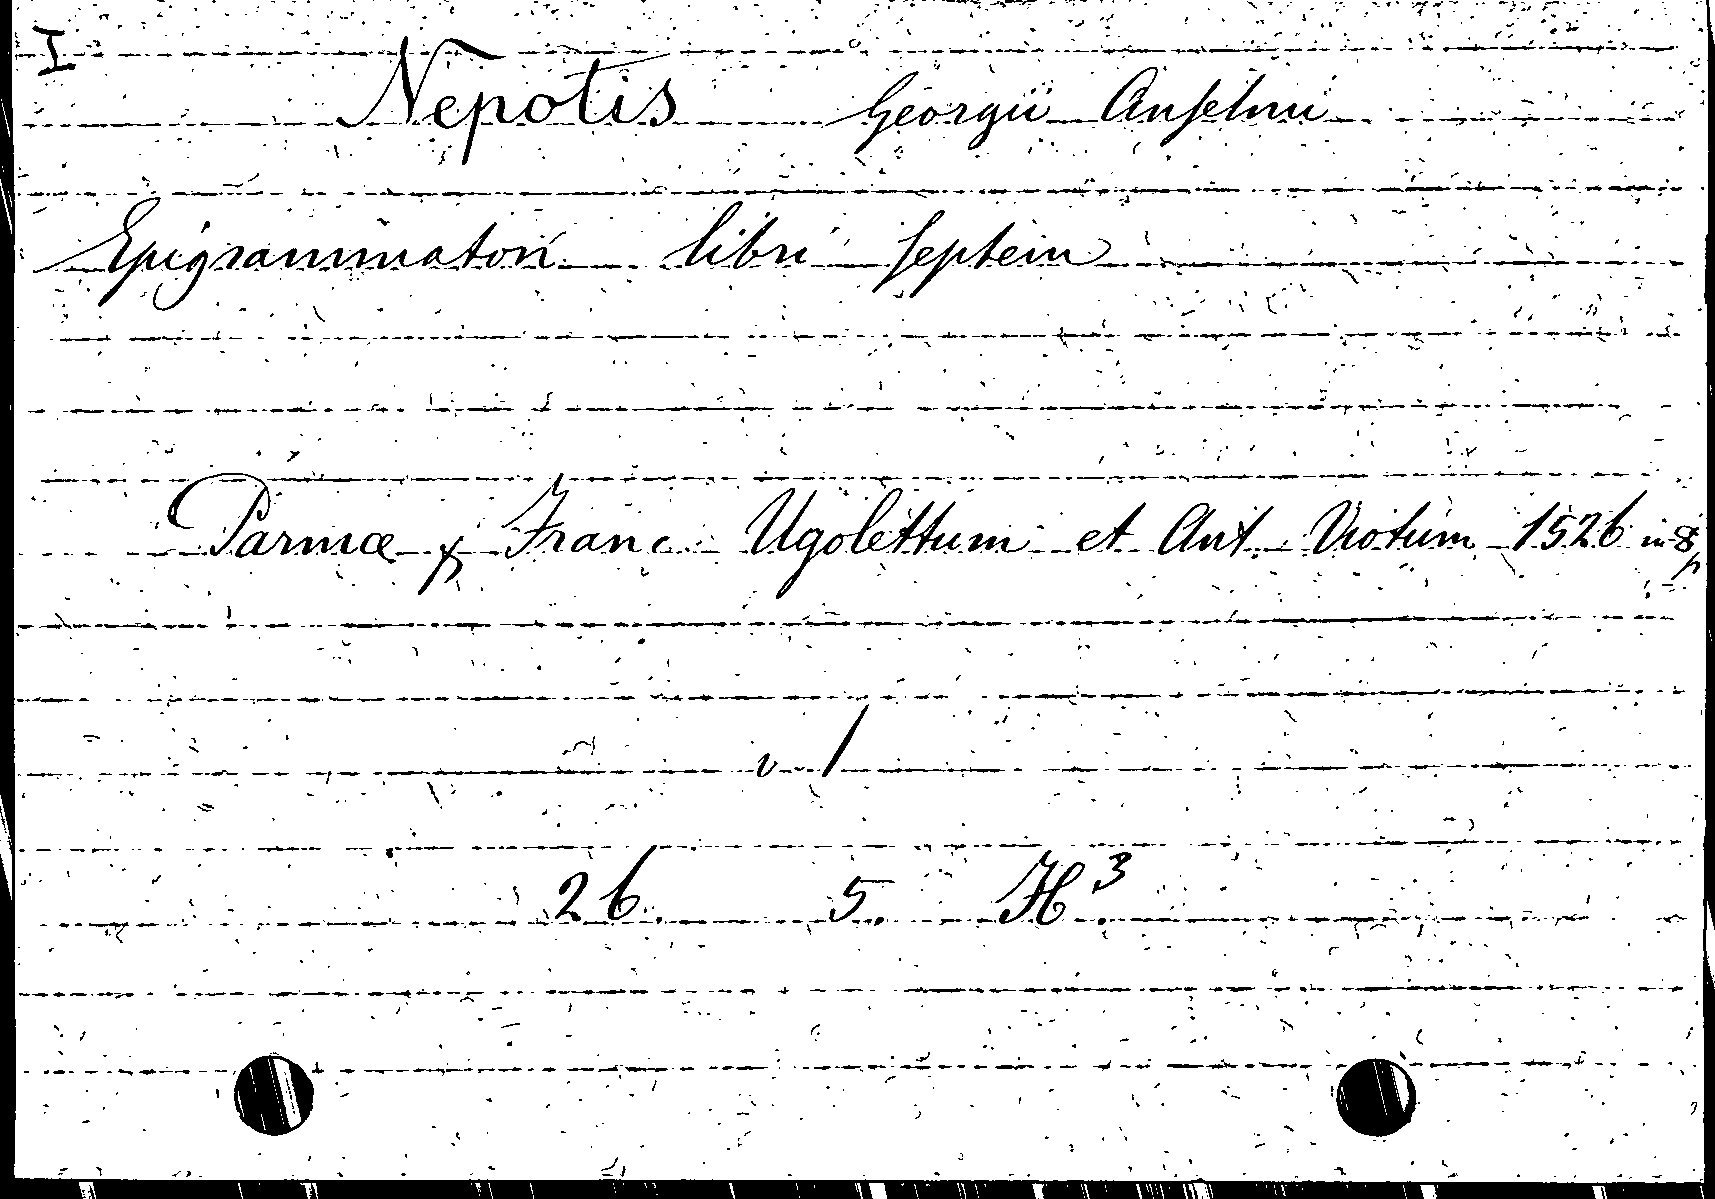 I
Nepotis Georgii Anselmi
Epigrammaton libri septem
Parmæ p Franc Ugolettum et Ant Viotum 1526 in 8
v 1
26. 5. H.3